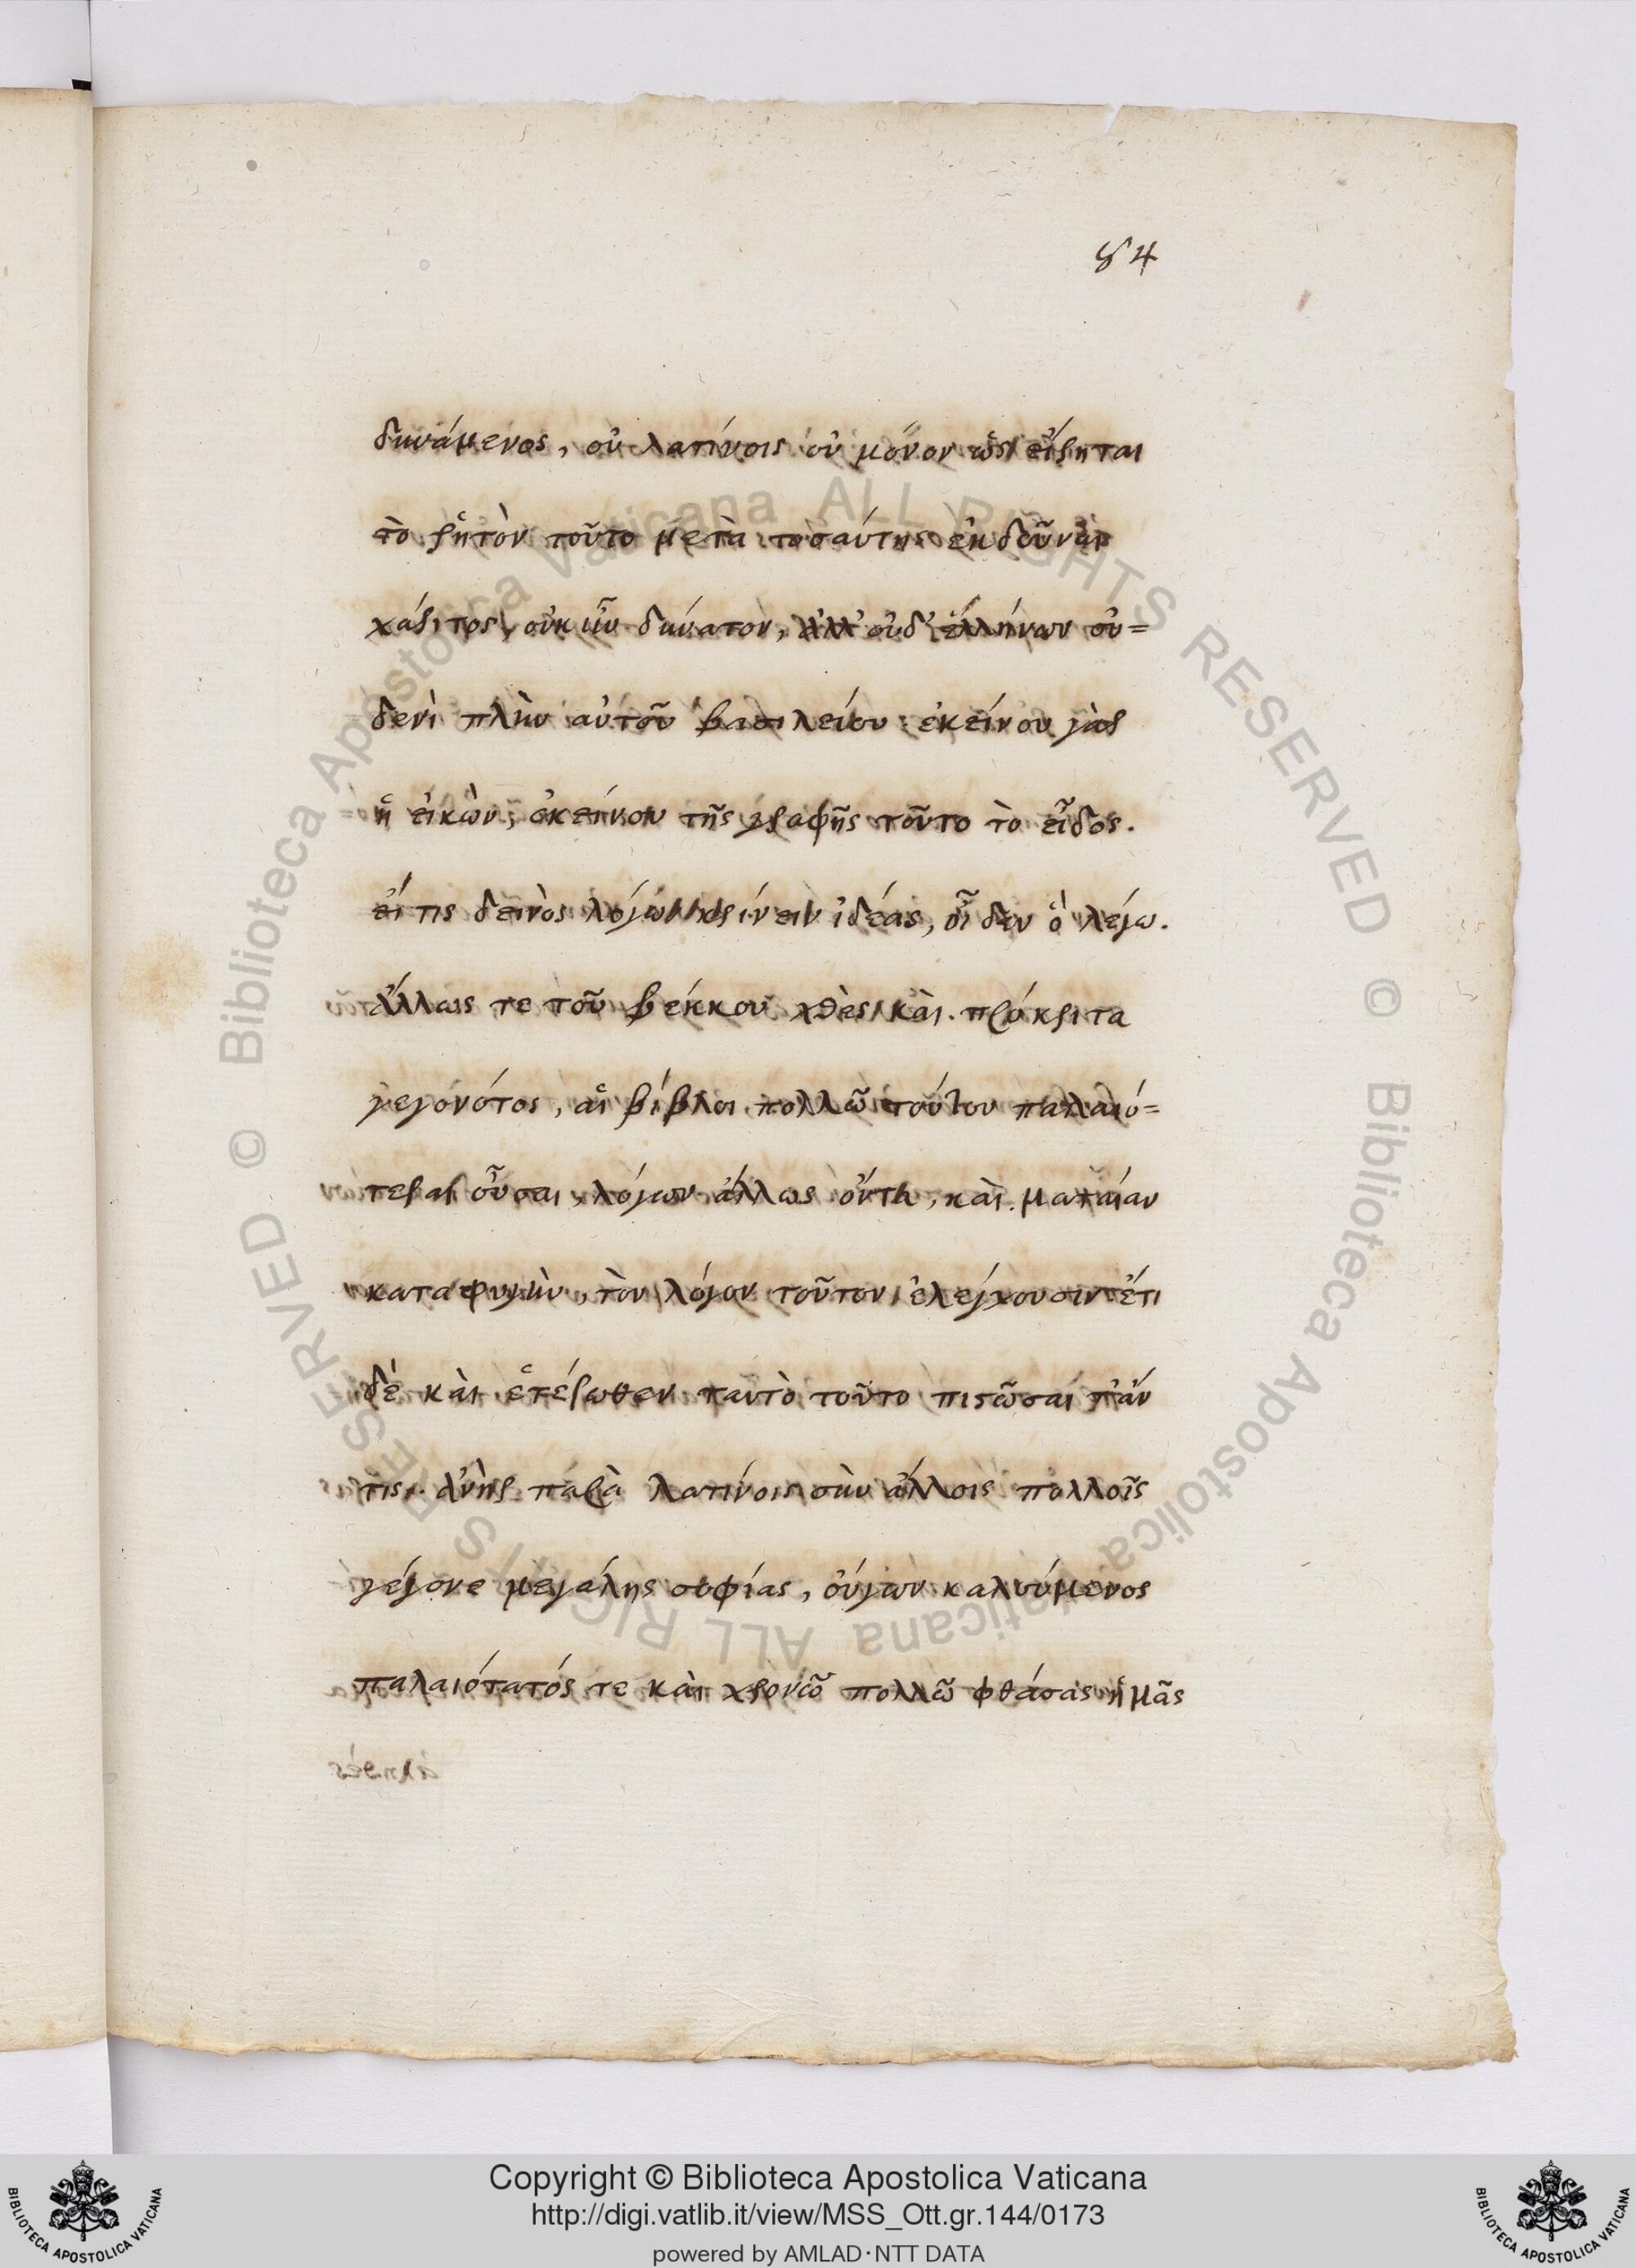 84
δυνάμενος, οὐ λατίνοις οὐ μόνον ὡς εἴρηται
τὸ ῥητὸν τοῦτο μετὰ τοσαύτης ἐκδοῦναι
χάριτος, οὐκ ἦν δύνατον, ἀλλ' οὐδ' ἑλλήνων οὐ=
δενὶ πλὴν αὐτοῦ βασιλείου ἐκείνου γὰρ
ἡ εἰκὼν, ἐκείνου τῆς γραφῆς τοῦτο τὸ εἶδος.
εἴ τις δεινὸς λόγων κρίνειν ἰδέας, οἶδεν ὃ λέγω.
Ἄλλως τε τοῦ βέκκου χθὲς καὶ πρόκριτα
γεγονότος, αἱ βίβλοι πολλῶ τούτου παλαιό=
τεραι οὖσαι, λόγων ἄλλως ὄντα, καὶ ματαίαν
καταφυγὴν, τὸν λόγον τοῦτον ἐλέγχουσιν ἔτι
δὲ καὶ ἑτέρωθεν ταυτὸ τοῦτο πιστῶσαί τ' ἄν
τις. ἀνὴρ παρὰ λατίνοις σὺν ἄλλοις πολλοῖς
γέγονε μεγάλης σοφίας, οὔγων καλούμενος
παλαιότατός τε καὶ χρονῶ πολλῶ φθάσας ἡμᾶς
Copyright © Biblioteca Apostolica Vaticana
http://digi.vatlib.it/view/MSS_Ott.gr.144/0173
powered by AMLAD·NTT DATA
BIBLIOTECA APOSTOLICA VATICANA
BIBLIOTECA APOSTOLICA VATICANA
© Biblioteca Apostolica Vaticana ALL RIGHTS RESERVED
© Biblioteca Apostolica Vaticana ALL RIGHTS RESERVED